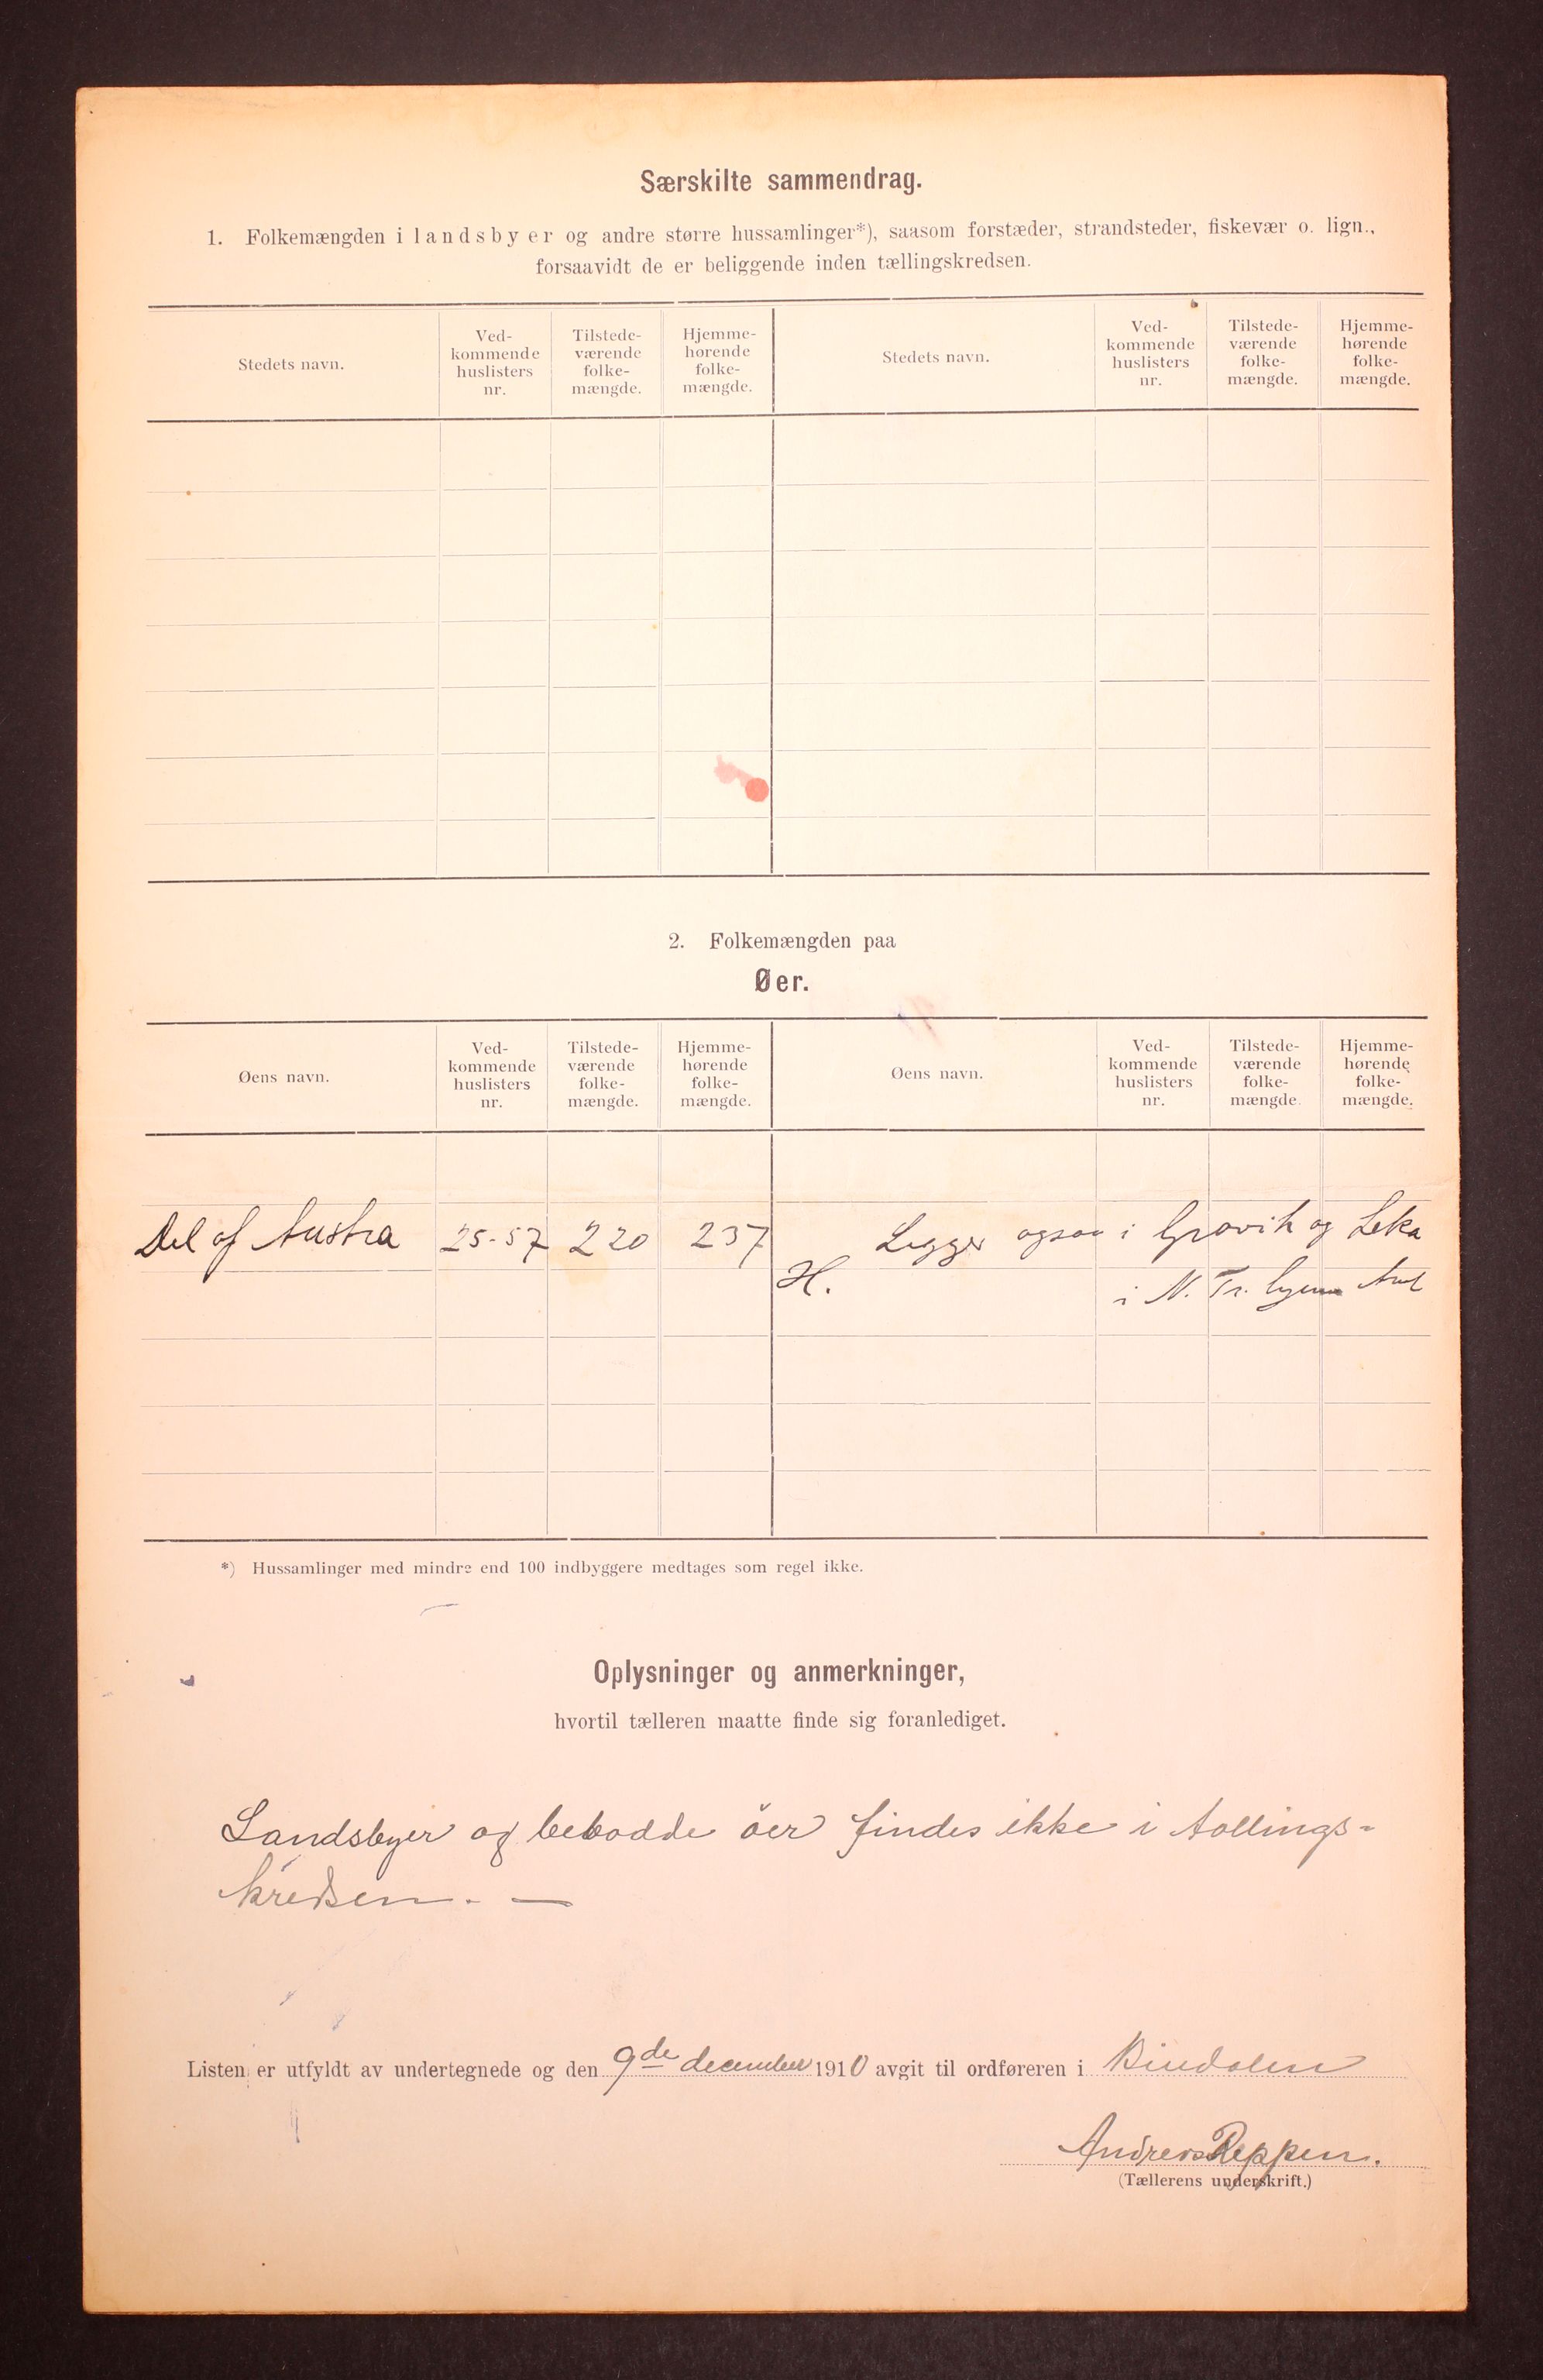 Særskilte sammendrag.
1. Folkemængden i landsbyer og andre større hussamlinger*), saasom forstæder, strandsteder, fiskevær o. lign.,
forsaavidt de er beliggende inden tællingskredsen.
Stedets navn.
Ved-
kommende
huslisters
nr.
Tilstede-
værende
folke-
mængde.
Hjemme-
hørende
folke-
mængde.
Stedets navn.
Ved-
kommende
huslisters
nr.
Tilstede-
værende
folke-
mængde.
Hjemme-
hørende
folke-
mængde.
2. Folkemængden paa
Øer.
Øens navn.
Ved-
kommende
huslisters
nr.
Tilstede-
værende
folke-
mængde.
Hjemme-
hørende
folke-
mængde.
Øens navn.
Ved-
kommende
huslisters
nr.
Tilstede-
værende
folke-
mængde.
Hjemme-
hørende
folke-
mængde.
Del af Austra 25-57 220 237 Ligger ogsaa i Gravik og Leka
H. i N. Tr. hjems Amt
*) Hussamlinger med mindre end 100 indbyggere medtages som regel ikke.
Oplysninger og anmerkninger,
hvortil tælleren maatte finde sig foranlediget.
Landsbyer og bebodde öer findes ikke i tællings-
kredsen. —
Listen er utfyldt av undertegnede og den 9de december 1910 avgit til ordføreren i Bindalen
Andreas Reppen.
(Tællerens underskrift.)